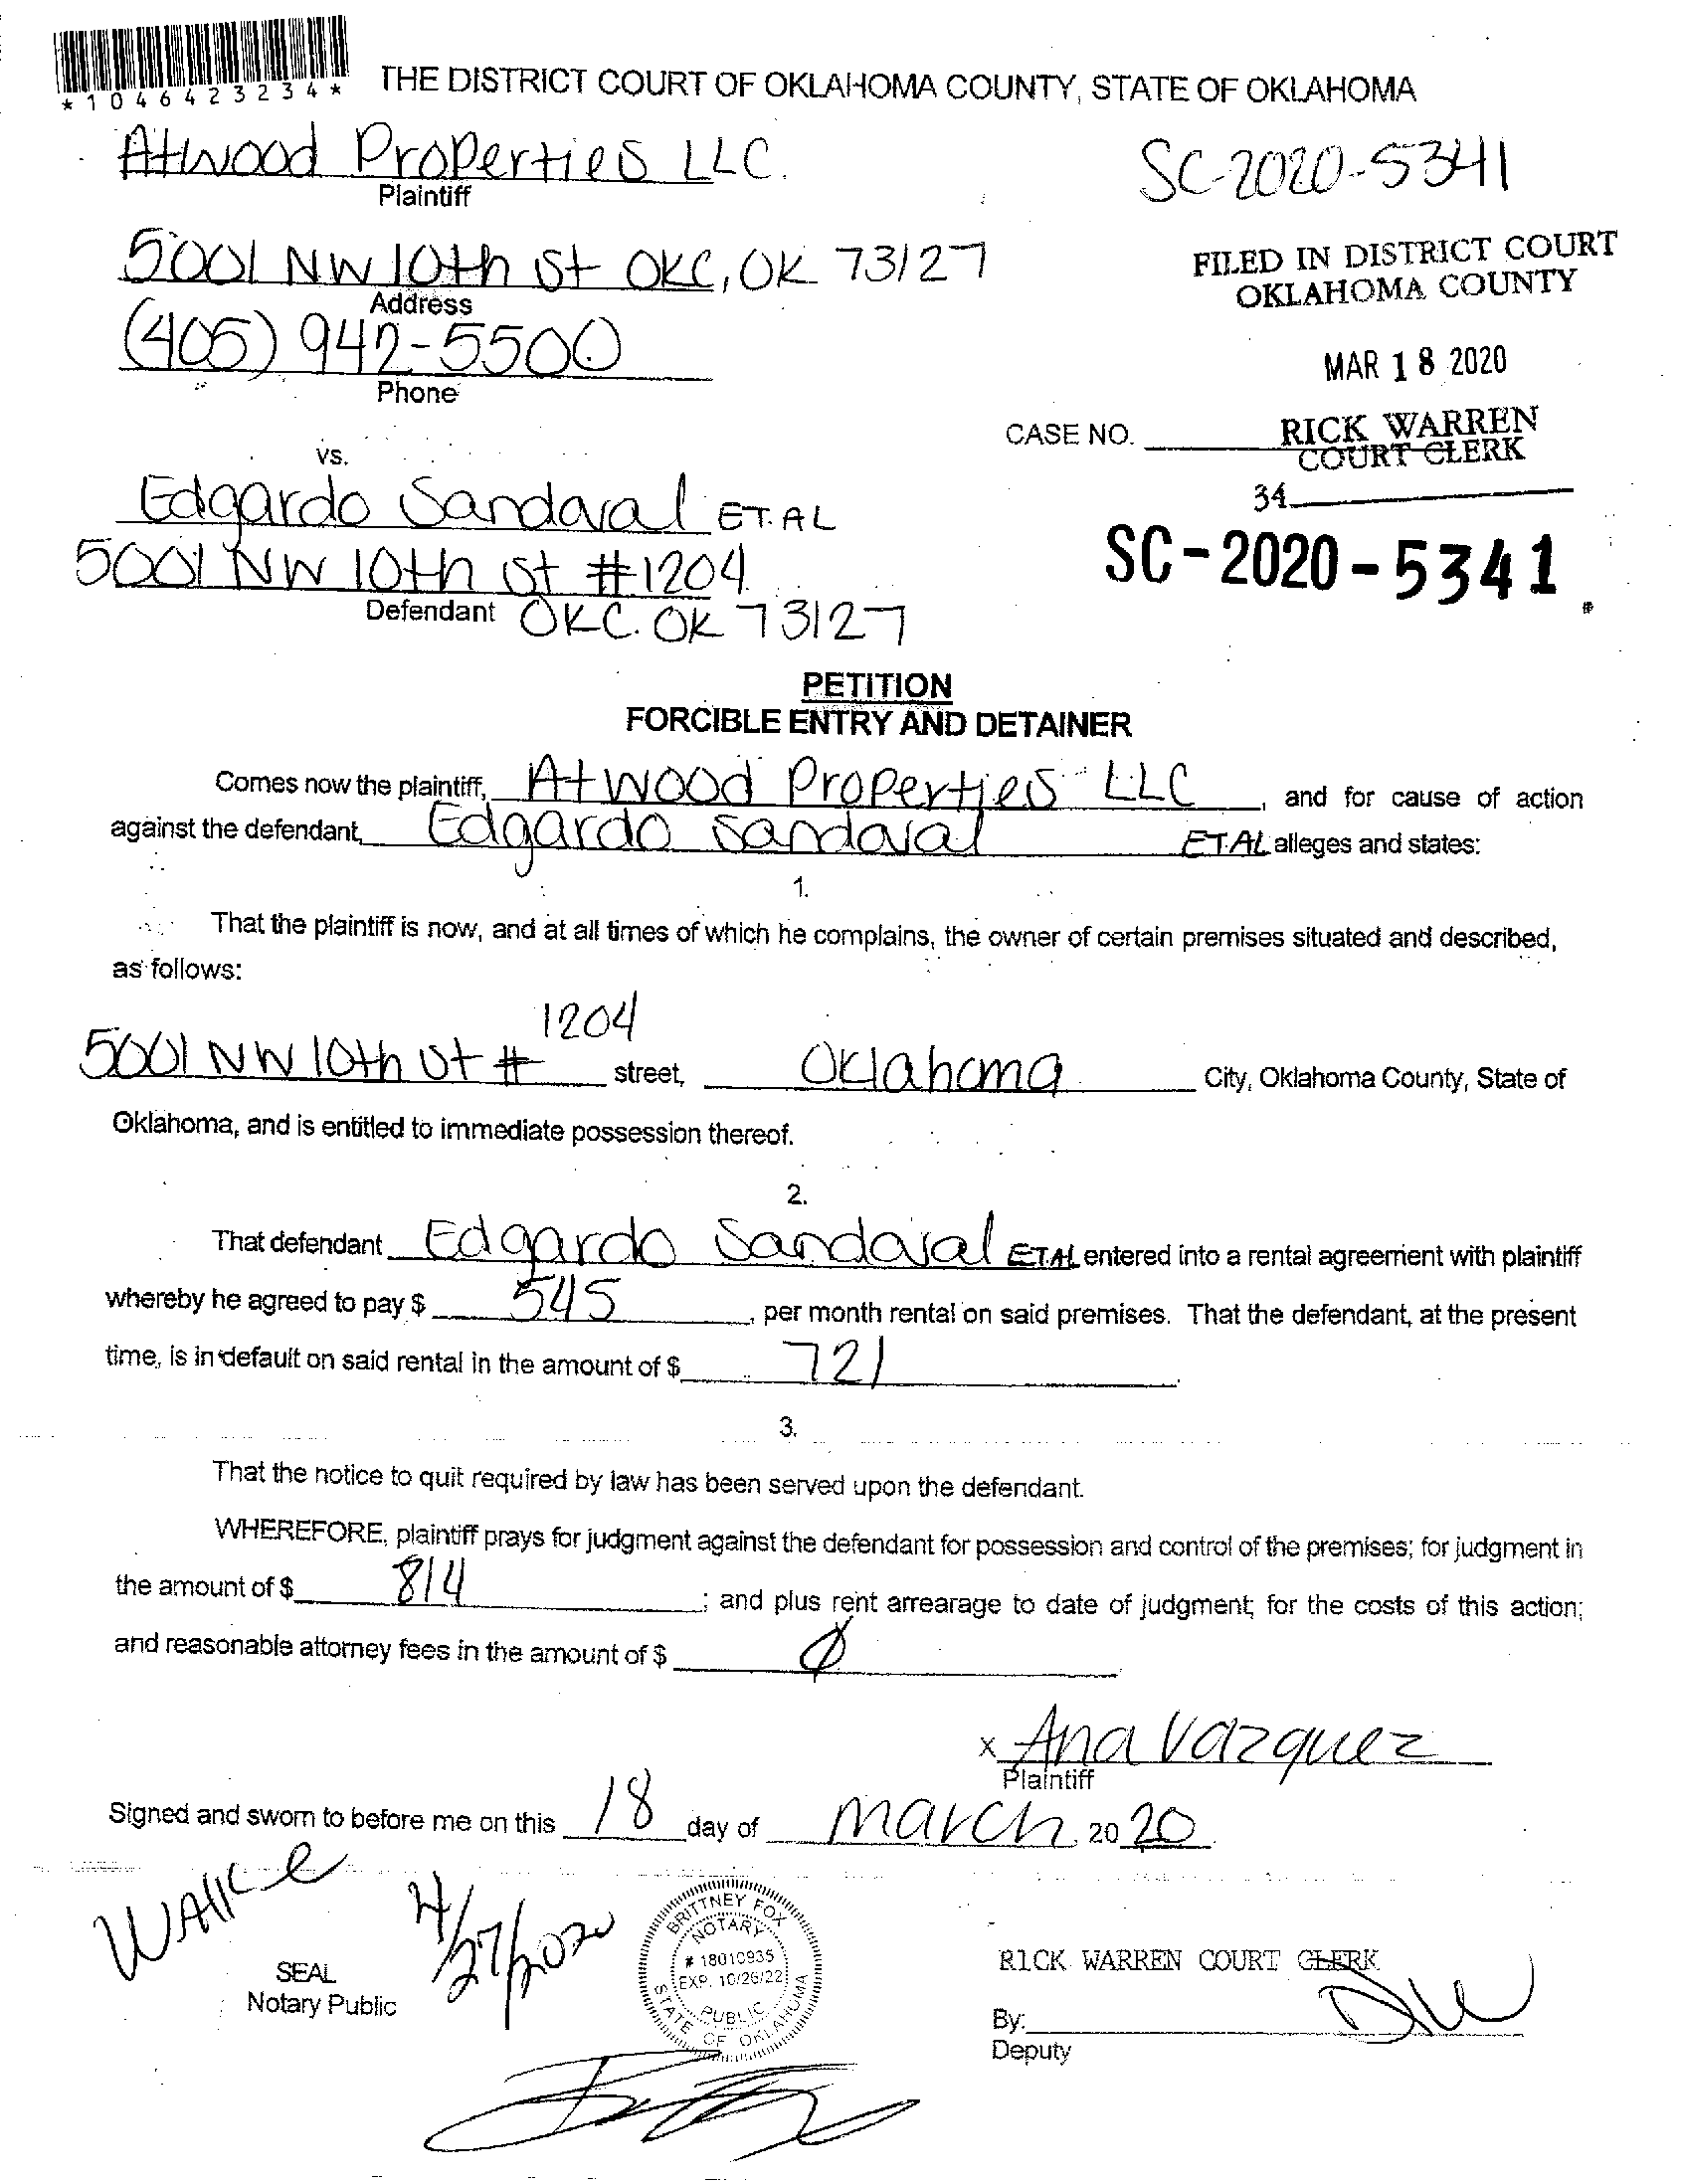 *1046423234*
THE DISTRICT COURT OF OKLAHOMA COUNTY, STATE OF OKLAHOMA
Atwood Properties LLC.
Plaintiff
SC-2020-5341
5001 NW 10th St OKC, OK 73127
Address
FILED IN DISTRICT COURT
OKLAHOMA COUNTY
(405) 942-5500
Phone
MAR 18 2020
CASE NO.
RICK WARREN
COURT CLERK
vs.
34
Edgardo Sandaval ET. AL
5001 NW 10th St #1204
Defendant OKC. OK 73127
SC-2020-5341
PETITION
FORCIBLE ENTRY AND DETAINER
Comes now the plaintiff, Atwood Properties LLC, and for cause of action
against the defendant, Edgardo Sandaval ET.AL alleges and states:
1.
That the plaintiff is now, and at all times of which he complains, the owner of certain premises situated and described,
as follows:
1204
5001 NW 10th St # street, Oklahoma City, Oklahoma County, State of
Oklahoma, and is entitled to immediate possession thereof.
2.
That defendant Edgardo Sandaval ET.AL entered into a rental agreement with plaintiff
whereby he agreed to pay $ 545, per month rental on said premises. That the defendant, at the present
time, is in default on said rental in the amount of $ 721
3.
That the notice to quit required by law has been served upon the defendant.
WHEREFORE, plaintiff prays for judgment against the defendant for possession and control of the premises; for judgment in
the amount of $ 814; and plus rent arrearage to date of judgment; for the costs of this action;
and reasonable attorney fees in the amount of $ Ø
x Ana Vazquez
Plaintiff
Signed and sworn to before me on this 18 day of March, 2020
4/27/2020
SEAL
Notary Public
BRITTNEY FOX
NOTARY
# 18010935
EXP. 10/26/22
PUBLIC
STATE OF OKLAHOMA
RICK WARREN COURT CLERK
By:
Deputy